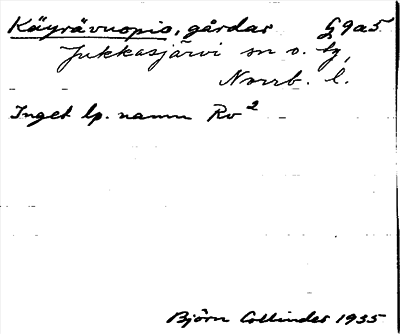 Käyrävuopio, gårdar § 9a5
Jukkasjärvi sn o. tg,
Norrb. l.
Inget lp. namn Rv²
Björn Collinder 1935